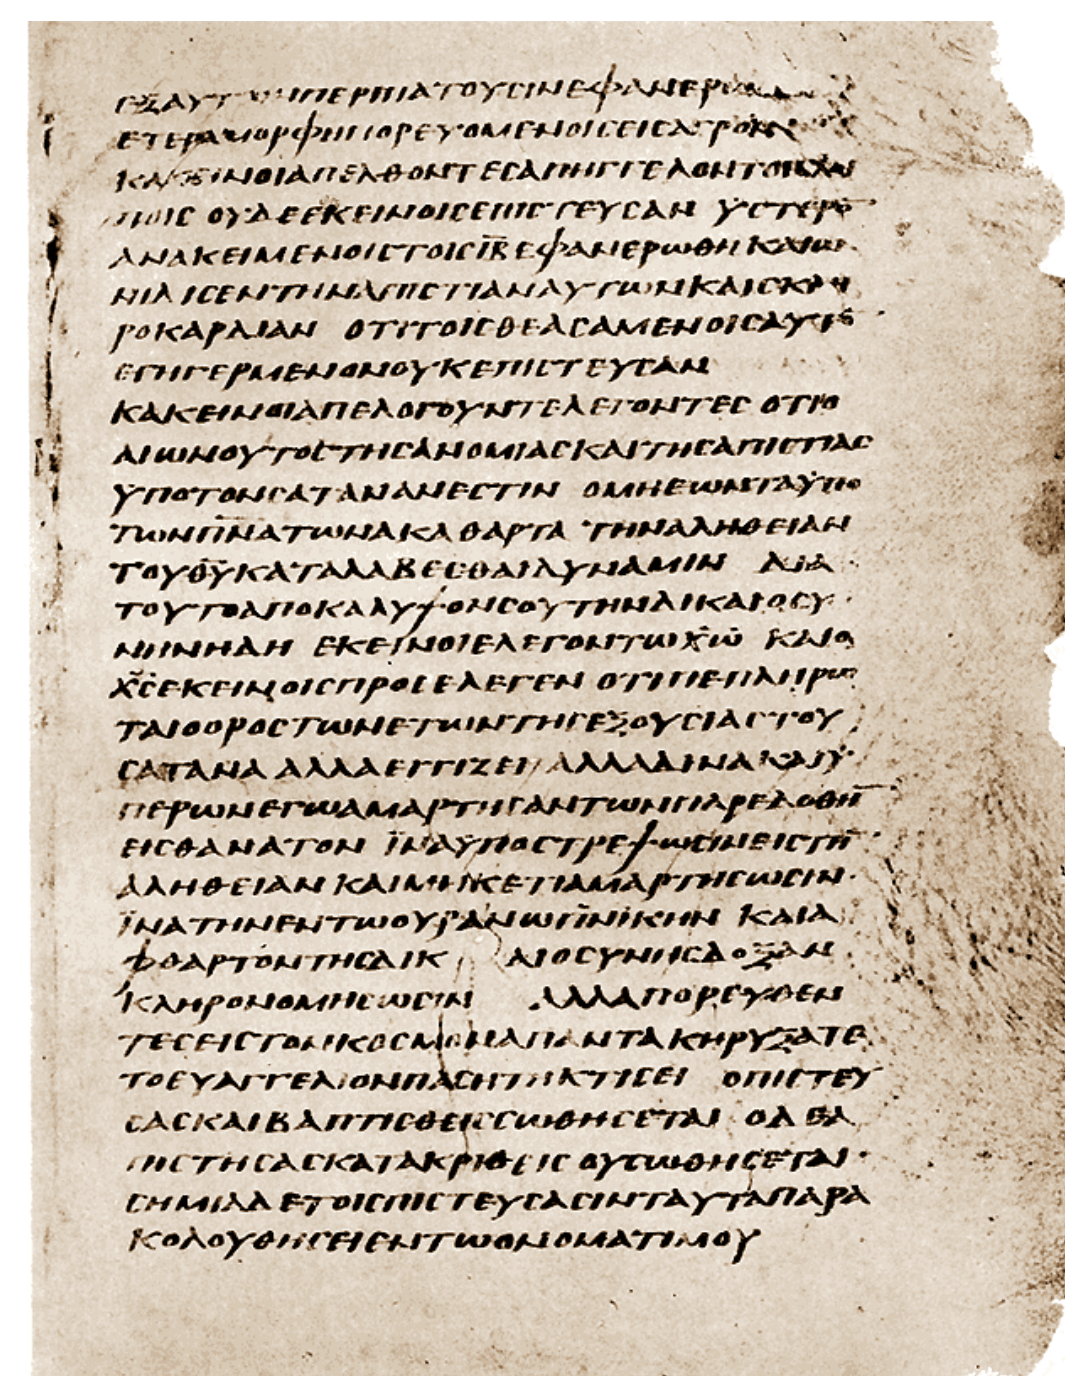 ΕΞΑΥΤΩΝΠΕΡΙΠΑΤΟΥCΙΝΕΦΑΝΕΡΩ
ΕΤΕΡΑΜΟΡΦΗΠΟΡΕΥΟΜΕΝΟΙCΕΙCΑΓΡΟΝ
ΚΑΚΕΙΝΟΙΑΠΕΛΘΟΝΤΕCΑΠΗΓΓΕΛΟΝΤΟΙCΛΟΙ
ΠΟΙC ΟΥΔΕΕΚΕΙΝΟΙCΕΠΙCΤΕΥCΑΝ ΥCΤΕΡΟ̅
ΑΝΑΚΕΙΜΕΝΟΙCΤΟΙCΙ̅Α̅ΕΦΑΝΕΡΩΘΗΚΑΙΩ
ΝΙΔΙCΕΝΤΗΝΑΠΙCΤΙΑΝΑΥΤΩΝΚΑΙCΚΛΗ
ΡΟΚΑΡΔΙΑΝ ΟΤΙΤΟΙCΘΕΑCΑΜΕΝΟΙCΑΥΤΟ̅
ΕΓΗΓΕΡΜΕΝΟΝΟΥΚΕΠΙCΤΕΥCΑΝ
ΚΑΚΕΙΝΟΙΑΠΕΛΟΓΟΥΝΤΕΛΕΓΟΝΤΕC ΟΤΙΟ
ΑΙΩΝΟΥΤΟCΤΗCΑΝΟΜΙΑCΚΑΙΤΗCΑΠΙCΤΙΑC
ΥΠΟΤΟΝCΑΤΑΝΑΝΕCΤΙΝ ΟΜΗΕΩΝΤΑΥΠΟ
ΤΩΝΠ̅Ν̅ΑΤΩΝΑΚΑΘΑΡΤΑ ΤΗΝΑΛΗΘΕΙΑΝ
ΤΟΥΘ̅Υ̅ΚΑΤΑΛΑΒΕCΘΑΙΔΥΝΑΜΙΝ ΔΙΑ
ΤΟΥΤΟΑΠΟΚΑΛΥΨΟΝCΟΥΤΗΝΔΙΚΑΙΟCΥ
ΝΗΝΗΔΗ ΕΚΕΙΝΟΙΕΛΕΓΟΝΤΩΧ̅Ω̅ ΚΑΙΟ
Χ̅C̅ΕΚΕΙΝΟΙCΠΡΟCΕΛΕΓΕΝ ΟΤΙΠΕΠΛΗΡΩ
ΤΑΙΟΟΡΟCΤΩΝΕΤΩΝΤΗCΕΞΟΥCΙΑCΤΟΥ
CΑΤΑΝΑ ΑΛΛΑΕΓΓΙΖΕΙ ΑΛΛΑΔΙΝΑΚΑΙΥ
ΠΕΡΩΝΕΓΩΑΜΑΡΤΗCΑΝΤΩΝΠΑΡΕΔΟΘΗ̅
ΕΙCΘΑΝΑΤΟΝ ΪΝΑΥΠΟCΤΡΕΨΩCΙΝΕΙCΤΗ̅
ΑΛΗΘΕΙΑΝ ΚΑΙΜΗΚΕΤΙΑΜΑΡΤΗCΩCΙΝ
ΪΝΑΤΗΝΕΝΤΩΟΥΡΑΝΩΠ̅Ν̅ΙΚΗΝ ΚΑΙΑ
ΦΘΑΡΤΟΝΤΗCΔΙΚ ΑΙΟCΥΝΗCΔΟΞΑΝ
ΚΛΗΡΟΝΟΜΗCΩCΙΝ ΑΛΛΑΠΟΡΕΥΘΕΝ
ΤΕCΕΙCΤΟΝΚΟCΜΟΝΑΠΑΝΤΑΚΗΡΥΞΑΤΕ
ΤΟΕΥΑΓΓΕΛΙΟΝΠΑCΗΤΗΚΤΙCΕΙ ΟΠΙCΤΕΥ
CΑCΚΑΙΒΑΠΤΙCΘΕΙCCΩΘΗCΕΤΑΙ ΟΔΕΑ
ΠΙCΤΗCΑCΚΑΤΑΚΡΙΘΕΙC ΟΥCΩΘΗCΕΤΑΙ
CΗΜΙΑΔΕΤΟΙCΠΙCΤΕΥCΑCΙΝΤΑΥΤΑΠΑΡΑ
ΚΟΛΟΥΘΗCΕΙΕΝΤΩΟΝΟΜΑΤΙΜΟΥ